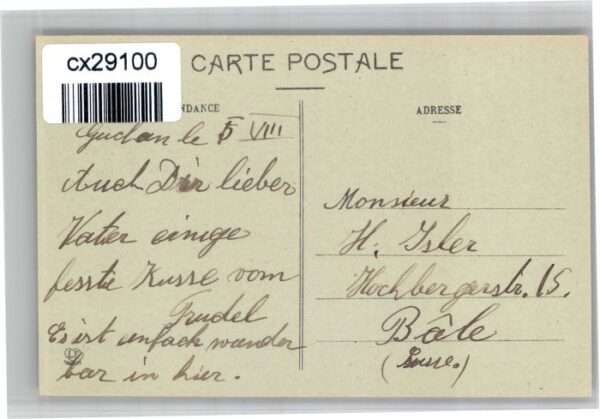 cx29100
CARTE POSTALE
NDANCE
ADRESSE
Guchan le 5 VIII
Auch Dir lieber
Vater einige
feste Kusse vom
Trudel
Es ist einfach wunder
bar in hier.
Monsieur
H. Isler
Hochbergerstr. 15.
Bâle
(Suisse.)